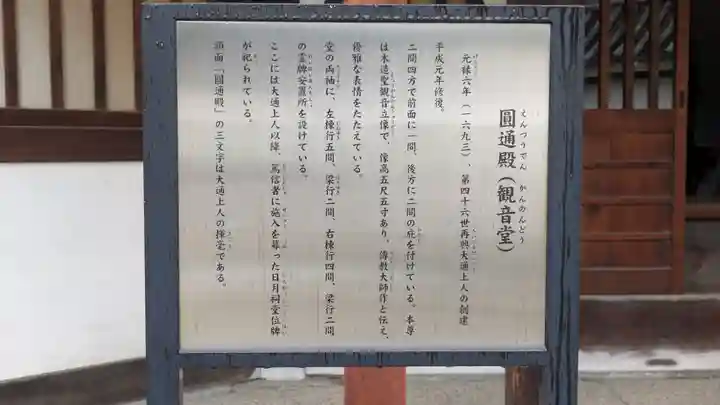 えんつうでん かんのんどう
圓通殿(観音堂)
元禄六年(一六九三)、第四十六世再興大通上人の創建
平成元年修復。
二間四方で前面に一間、後方に二間の庇を付けている。本尊
は木造聖観音立像で、像高五尺五寸あり、傳教大師作と伝え、
優雅な表情をたたえている。
堂の両袖に、左棟行五間、梁行二間、右棟行四間、梁行二間
の霊牌安置所を設けている。
ここには大通上人以降、篤信者に施入を募った日月祠堂位牌
が祀られている。
頭面「圓通殿」の三文字は大通上人の揮毫である。